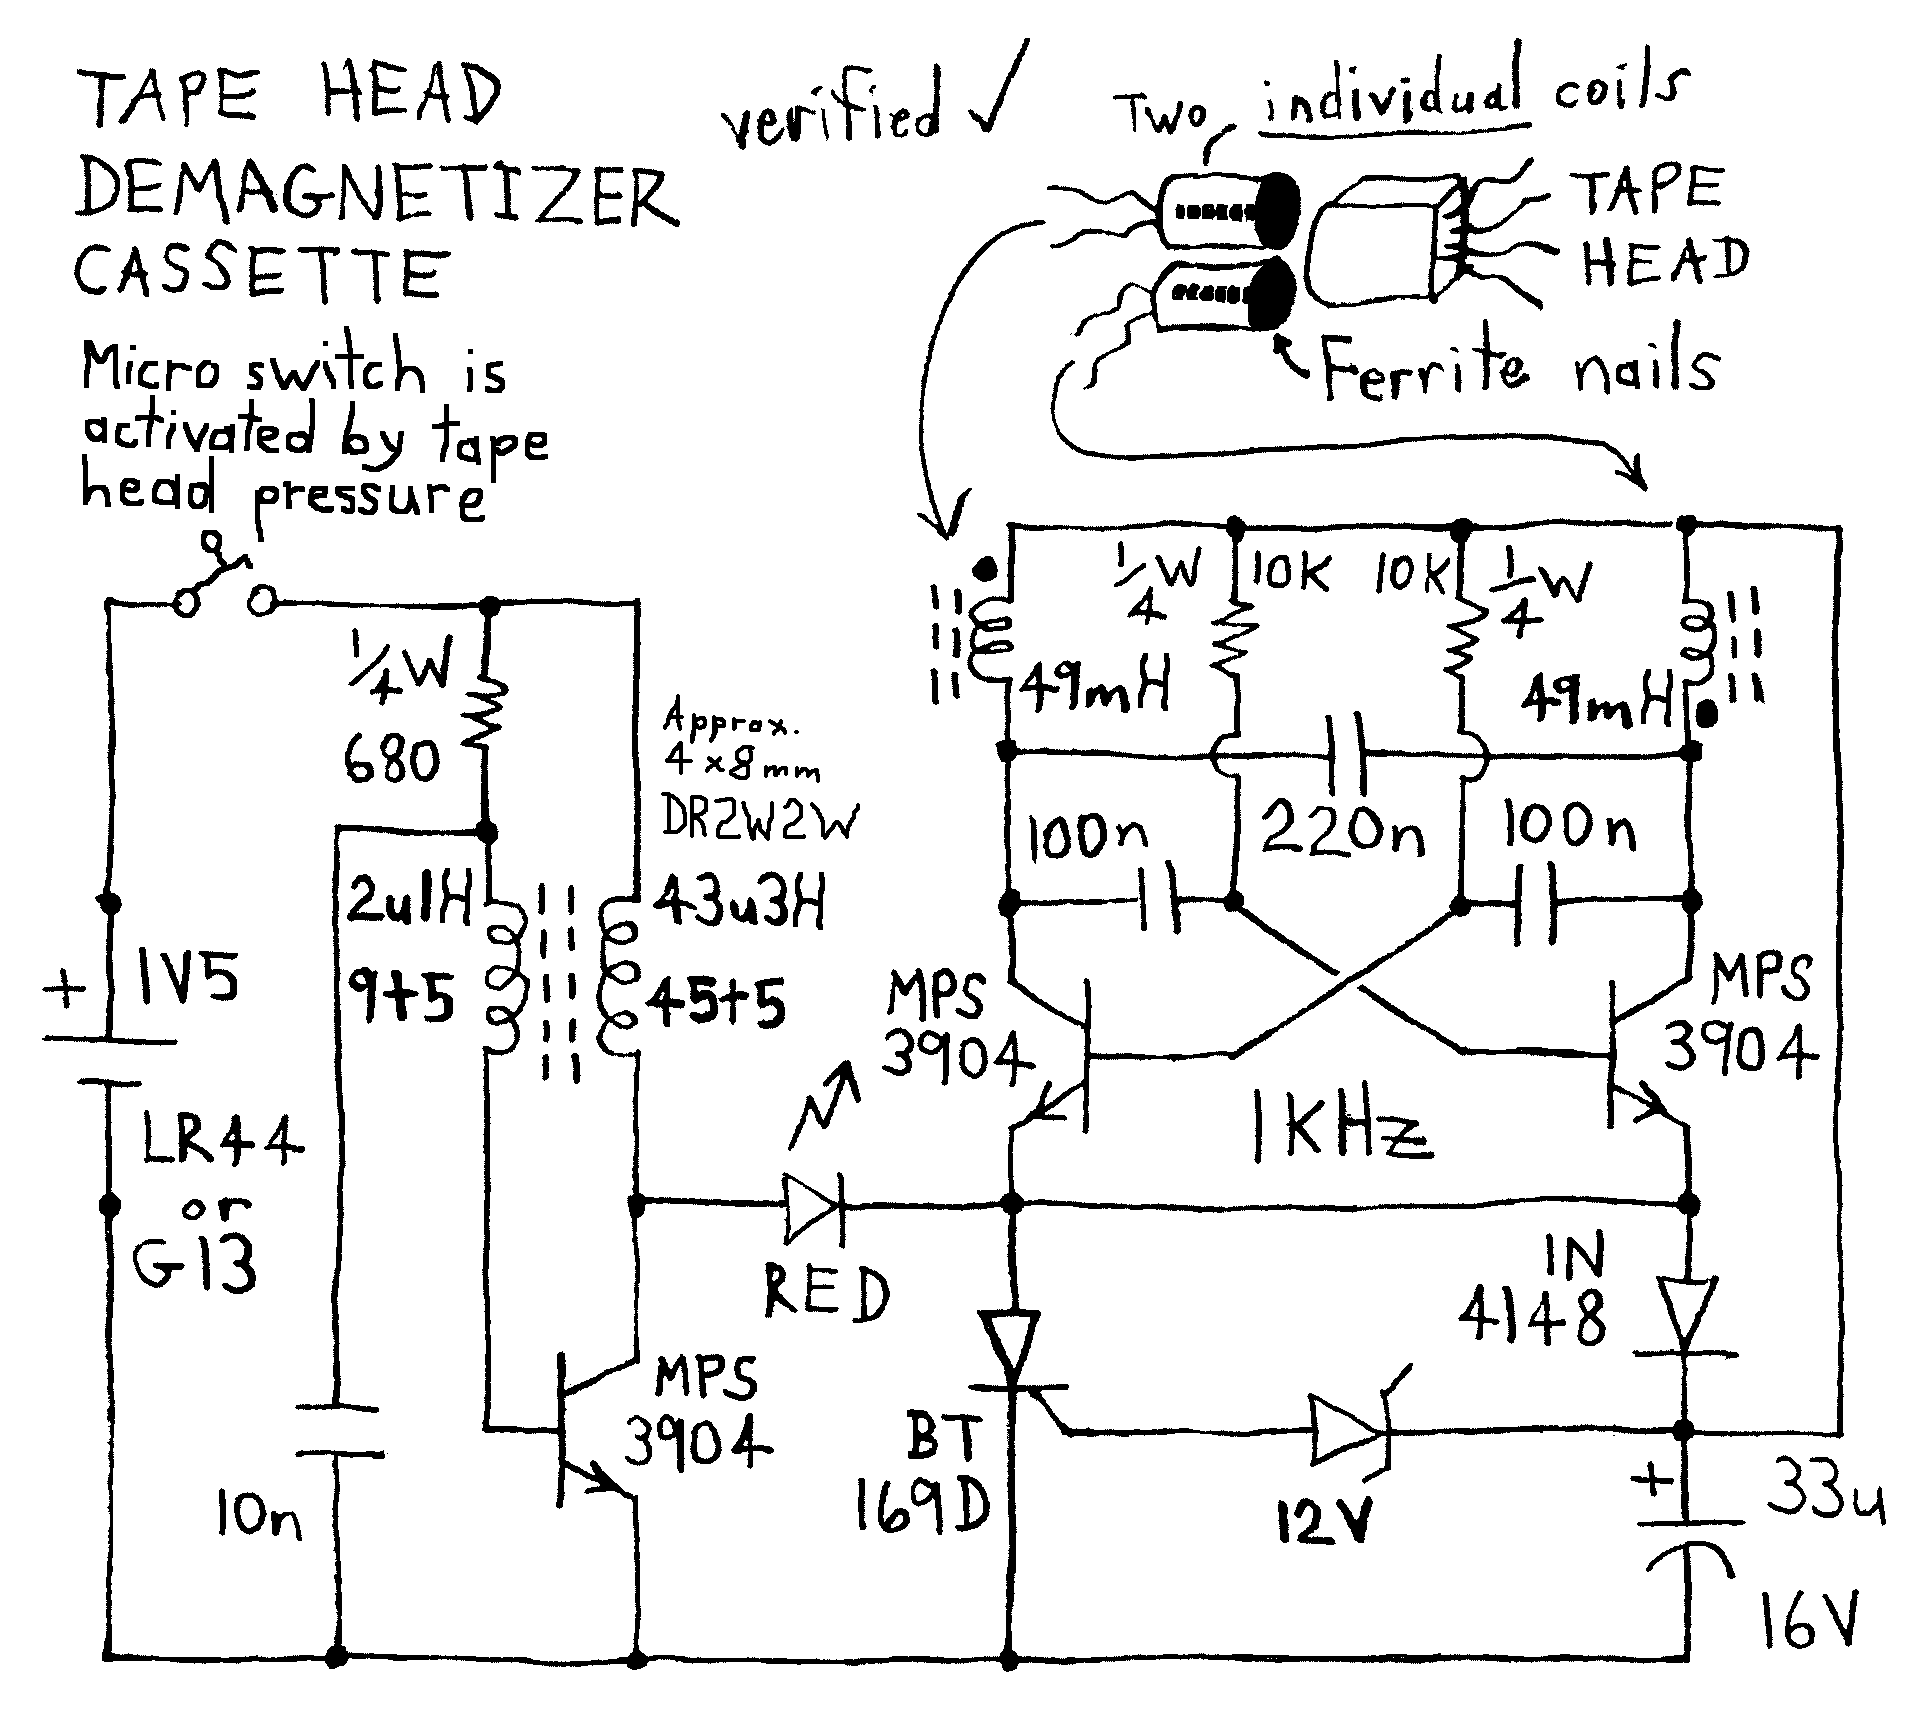 TAPE HEAD
DEMAGNETIZER
CASSETTE
verified ✓
Two individual coils
TAPE
HEAD
Ferrite nails
Micro switch is
activated by tape
head pressure
1/4 W
680
Approx.
4 x 8 mm
DR2W2W
2u1H
9+5
43u3H
45+5
+
1V5
LR44
or
G13
10n
MPS
3904
RED
1/4 W
10K
10K
1/4 W
49mH
49mH
220n
100n
100n
MPS
3904
MPS
3904
1KHz
1N
4148
BT
169D
12V
+
33u
16V